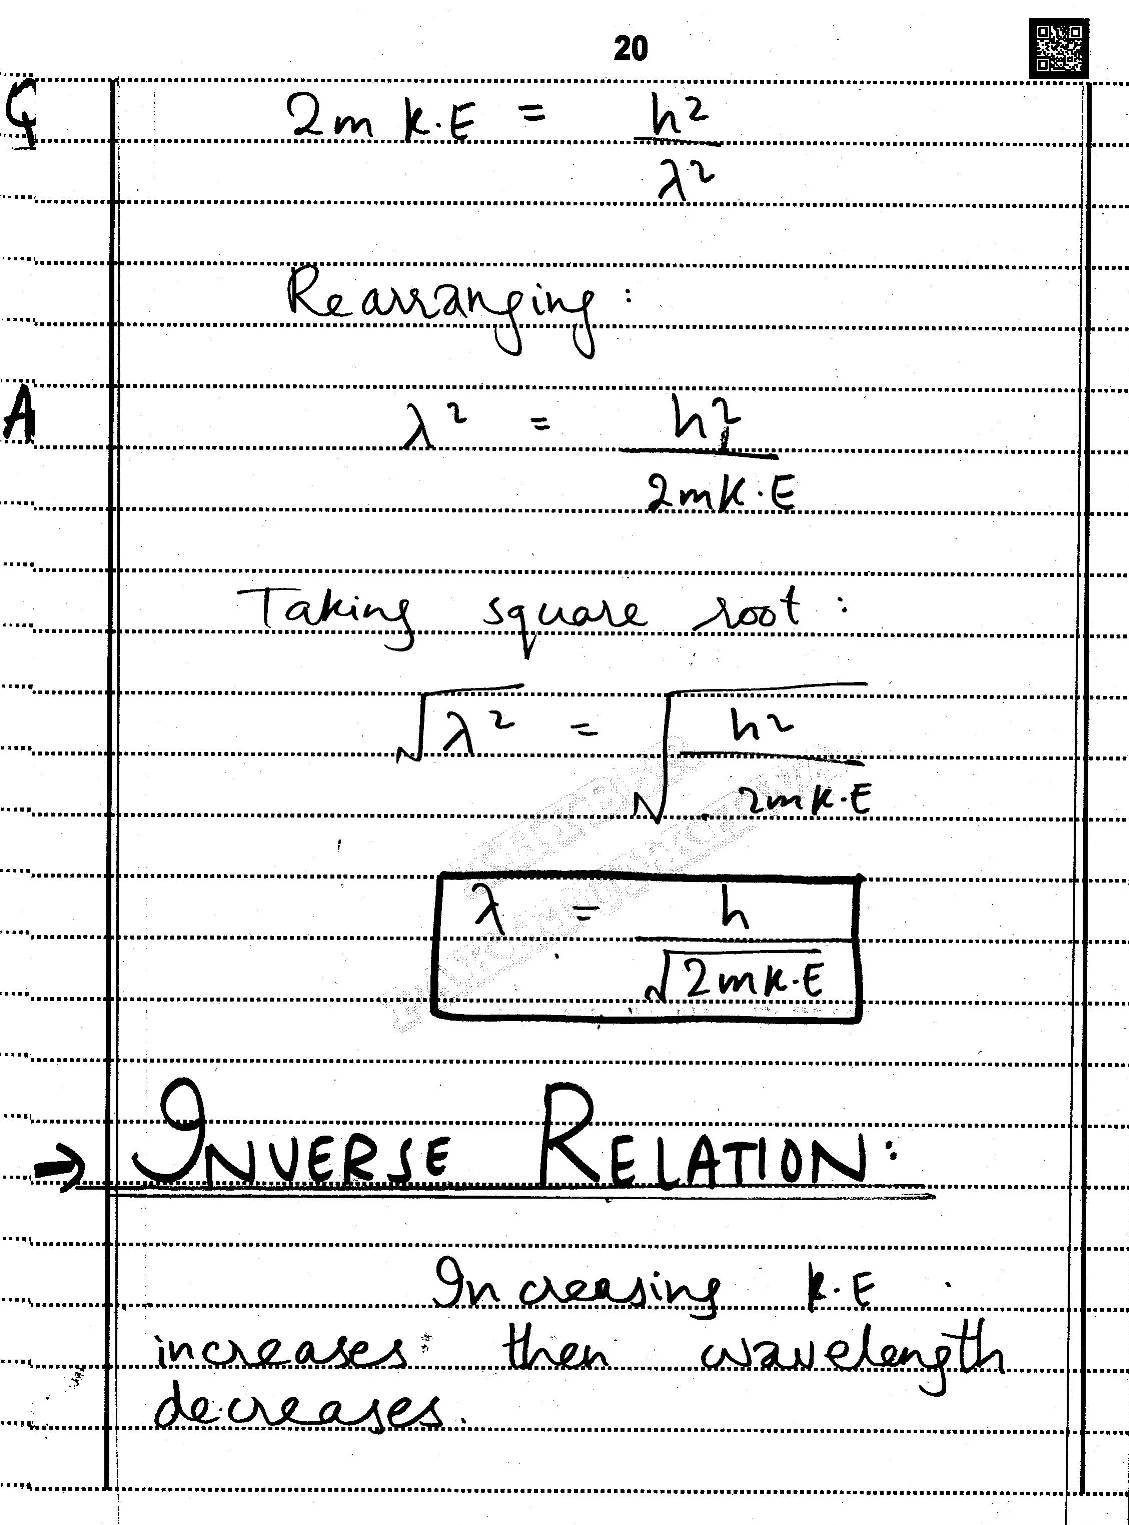 20
Ç
2m K.E = h²/λ²
Rearranging:
A
λ² = h²/2mK.E
Taking square root:
√λ² = √h²/2mK.E
λ = h/√2mK.E
→ INVERSE RELATION:
Increasing K.E
increases then wavelength
decreases.